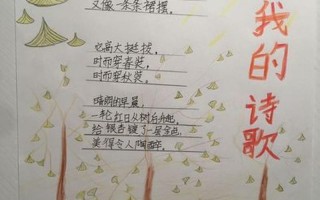 又像一条条裙摆。
它高大挺拔，
时而穿春装，
时而穿秋装。
晴朗的早晨，
一轮红日从树后升起，
给银杏镀了一层金边，
美得令人陶醉。
我的诗歌